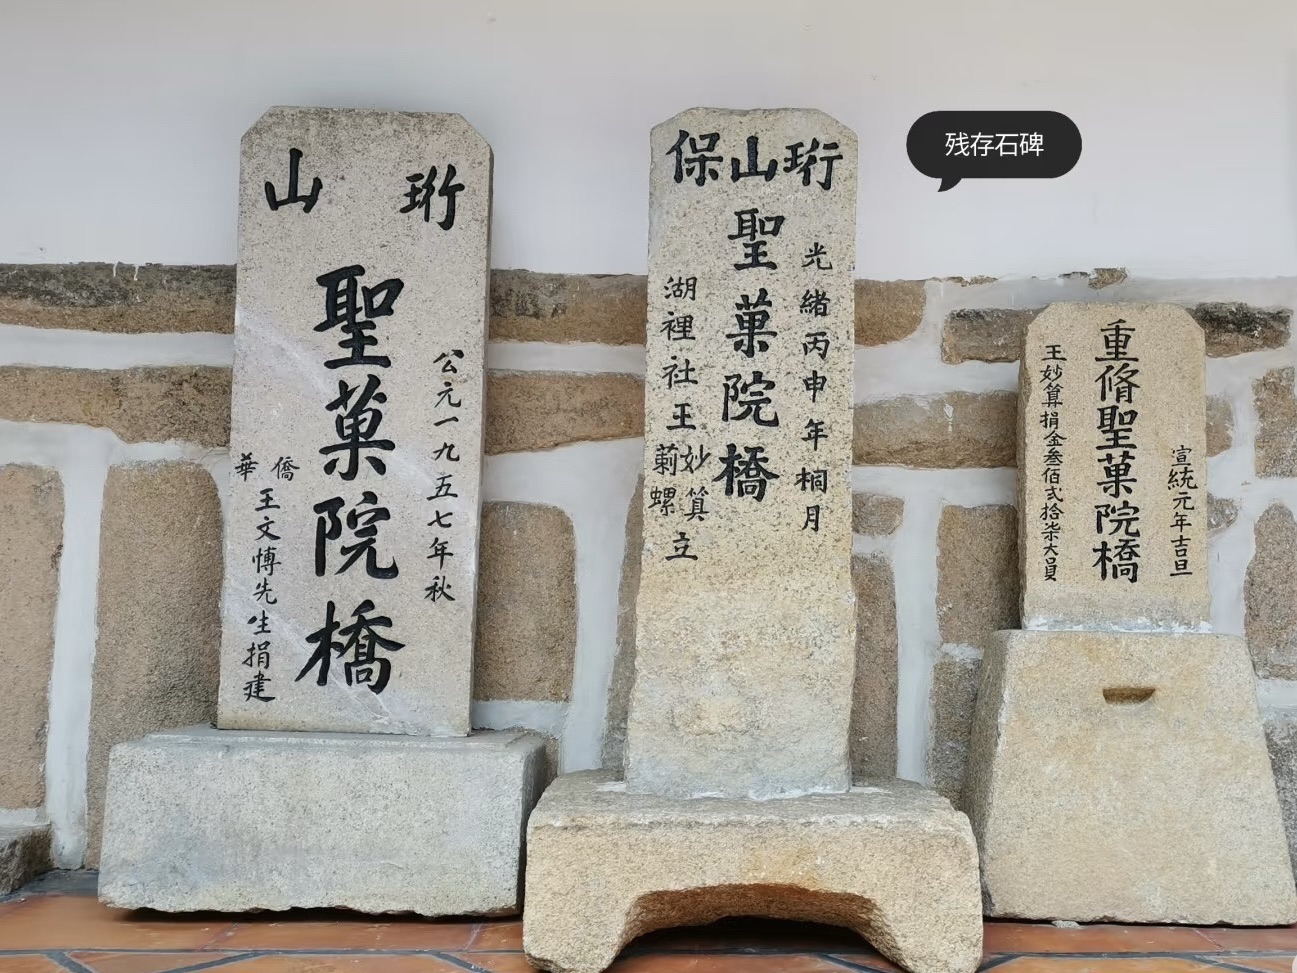 残存石碑
珩山
公元一九五七年秋
聖菓院橋
華僑
王文博先生捐建
珩山保
光緒丙申年桐月
聖菓院橋
湖裡社王
妙算
螺
立
宣統元年吉旦
重脩聖菓院橋
王妙算捐金叁佰弍拾柒大員